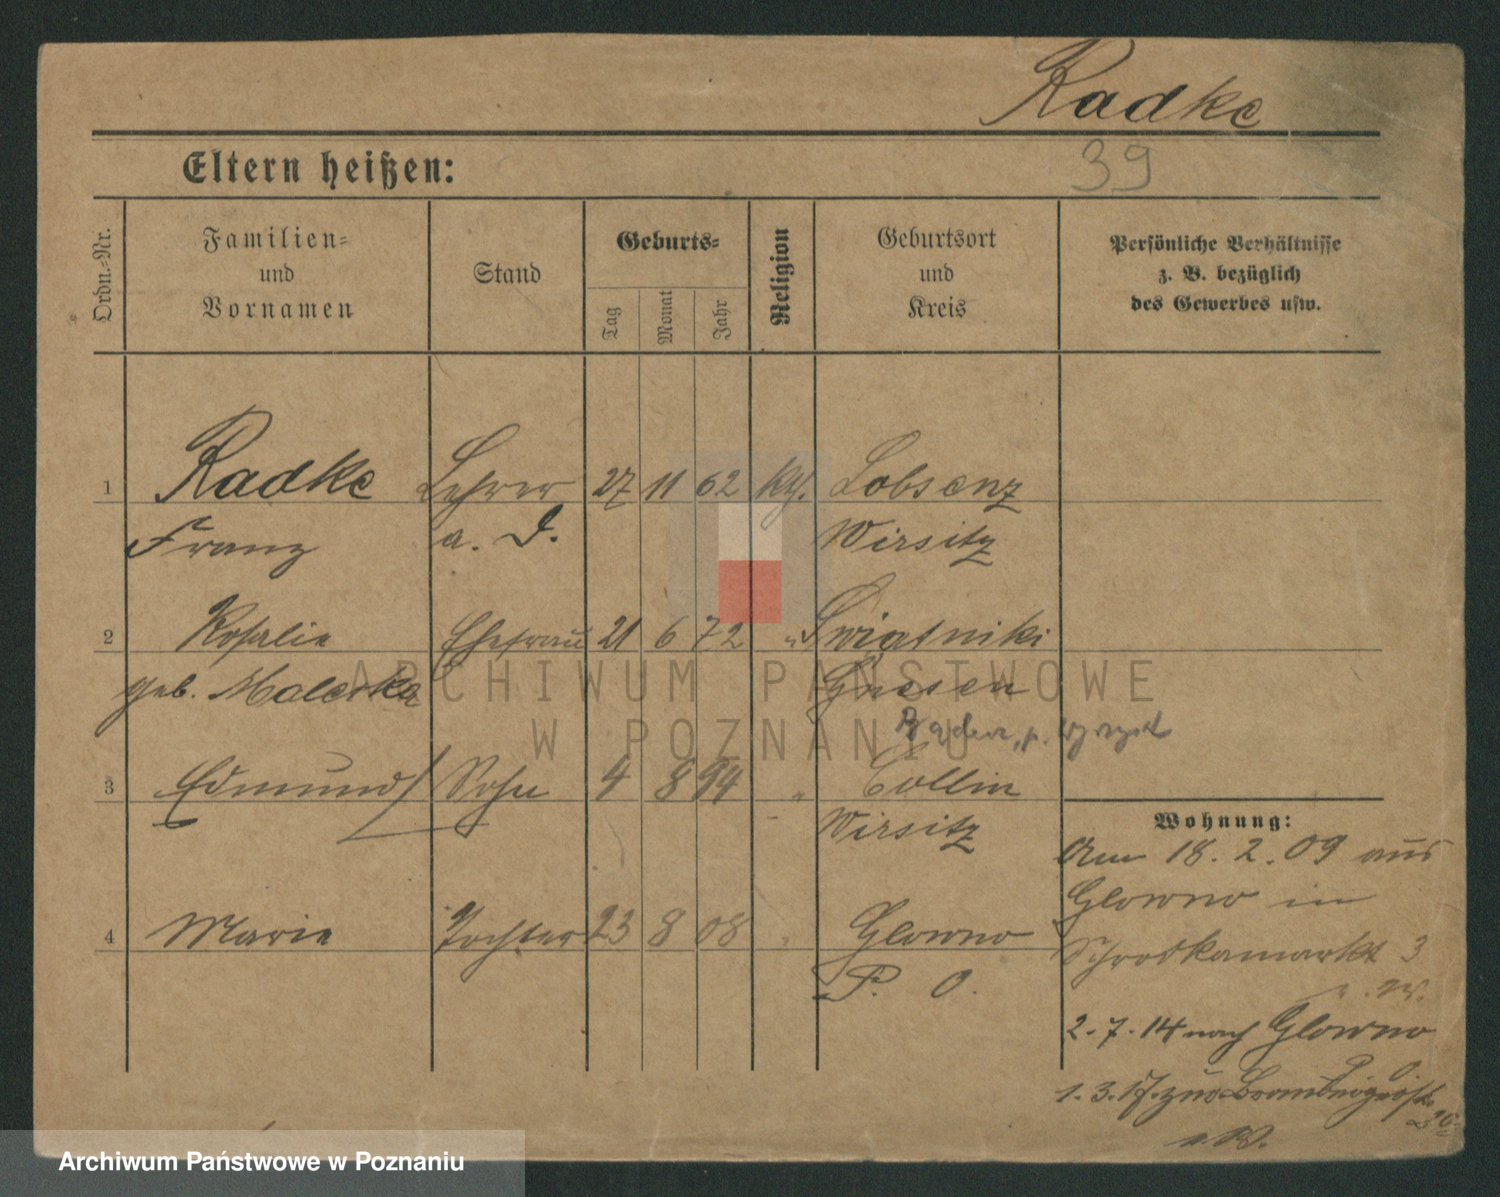 Radke
39
Eltern heißen:
Ordn.-Nr.
Familien- und Vornamen
Stand
Geburts-
Tag
Monat
Jahr
Religion
Geburtsort und Kreis
Persönliche Verhältnisse
z. B. bezüglich
des Gewerbes usw.
1 Radke Lehrer 27 11 62 kth. Lobsenz
Franz a. D. Wirsitz
2 Rosalie Ehefrau 21 6 72 " Swiatniki
geb. Malerka Gnesen
3 Edmund Sohn 4 8 94 " Collin
Wirsitz
4 Marie Tochter 23 8 08 " Glowno
P. O.
Wohnung:
Am 18. 2. 09 aus
Glowno in
Schrodkamarkt 3
2. 7. 14 nach Glowno
P. O.
1. 3. 17. zur
ARCHIWUM PAŃSTWOWE
W POZNANIU
Archiwum Państwowe w Poznaniu